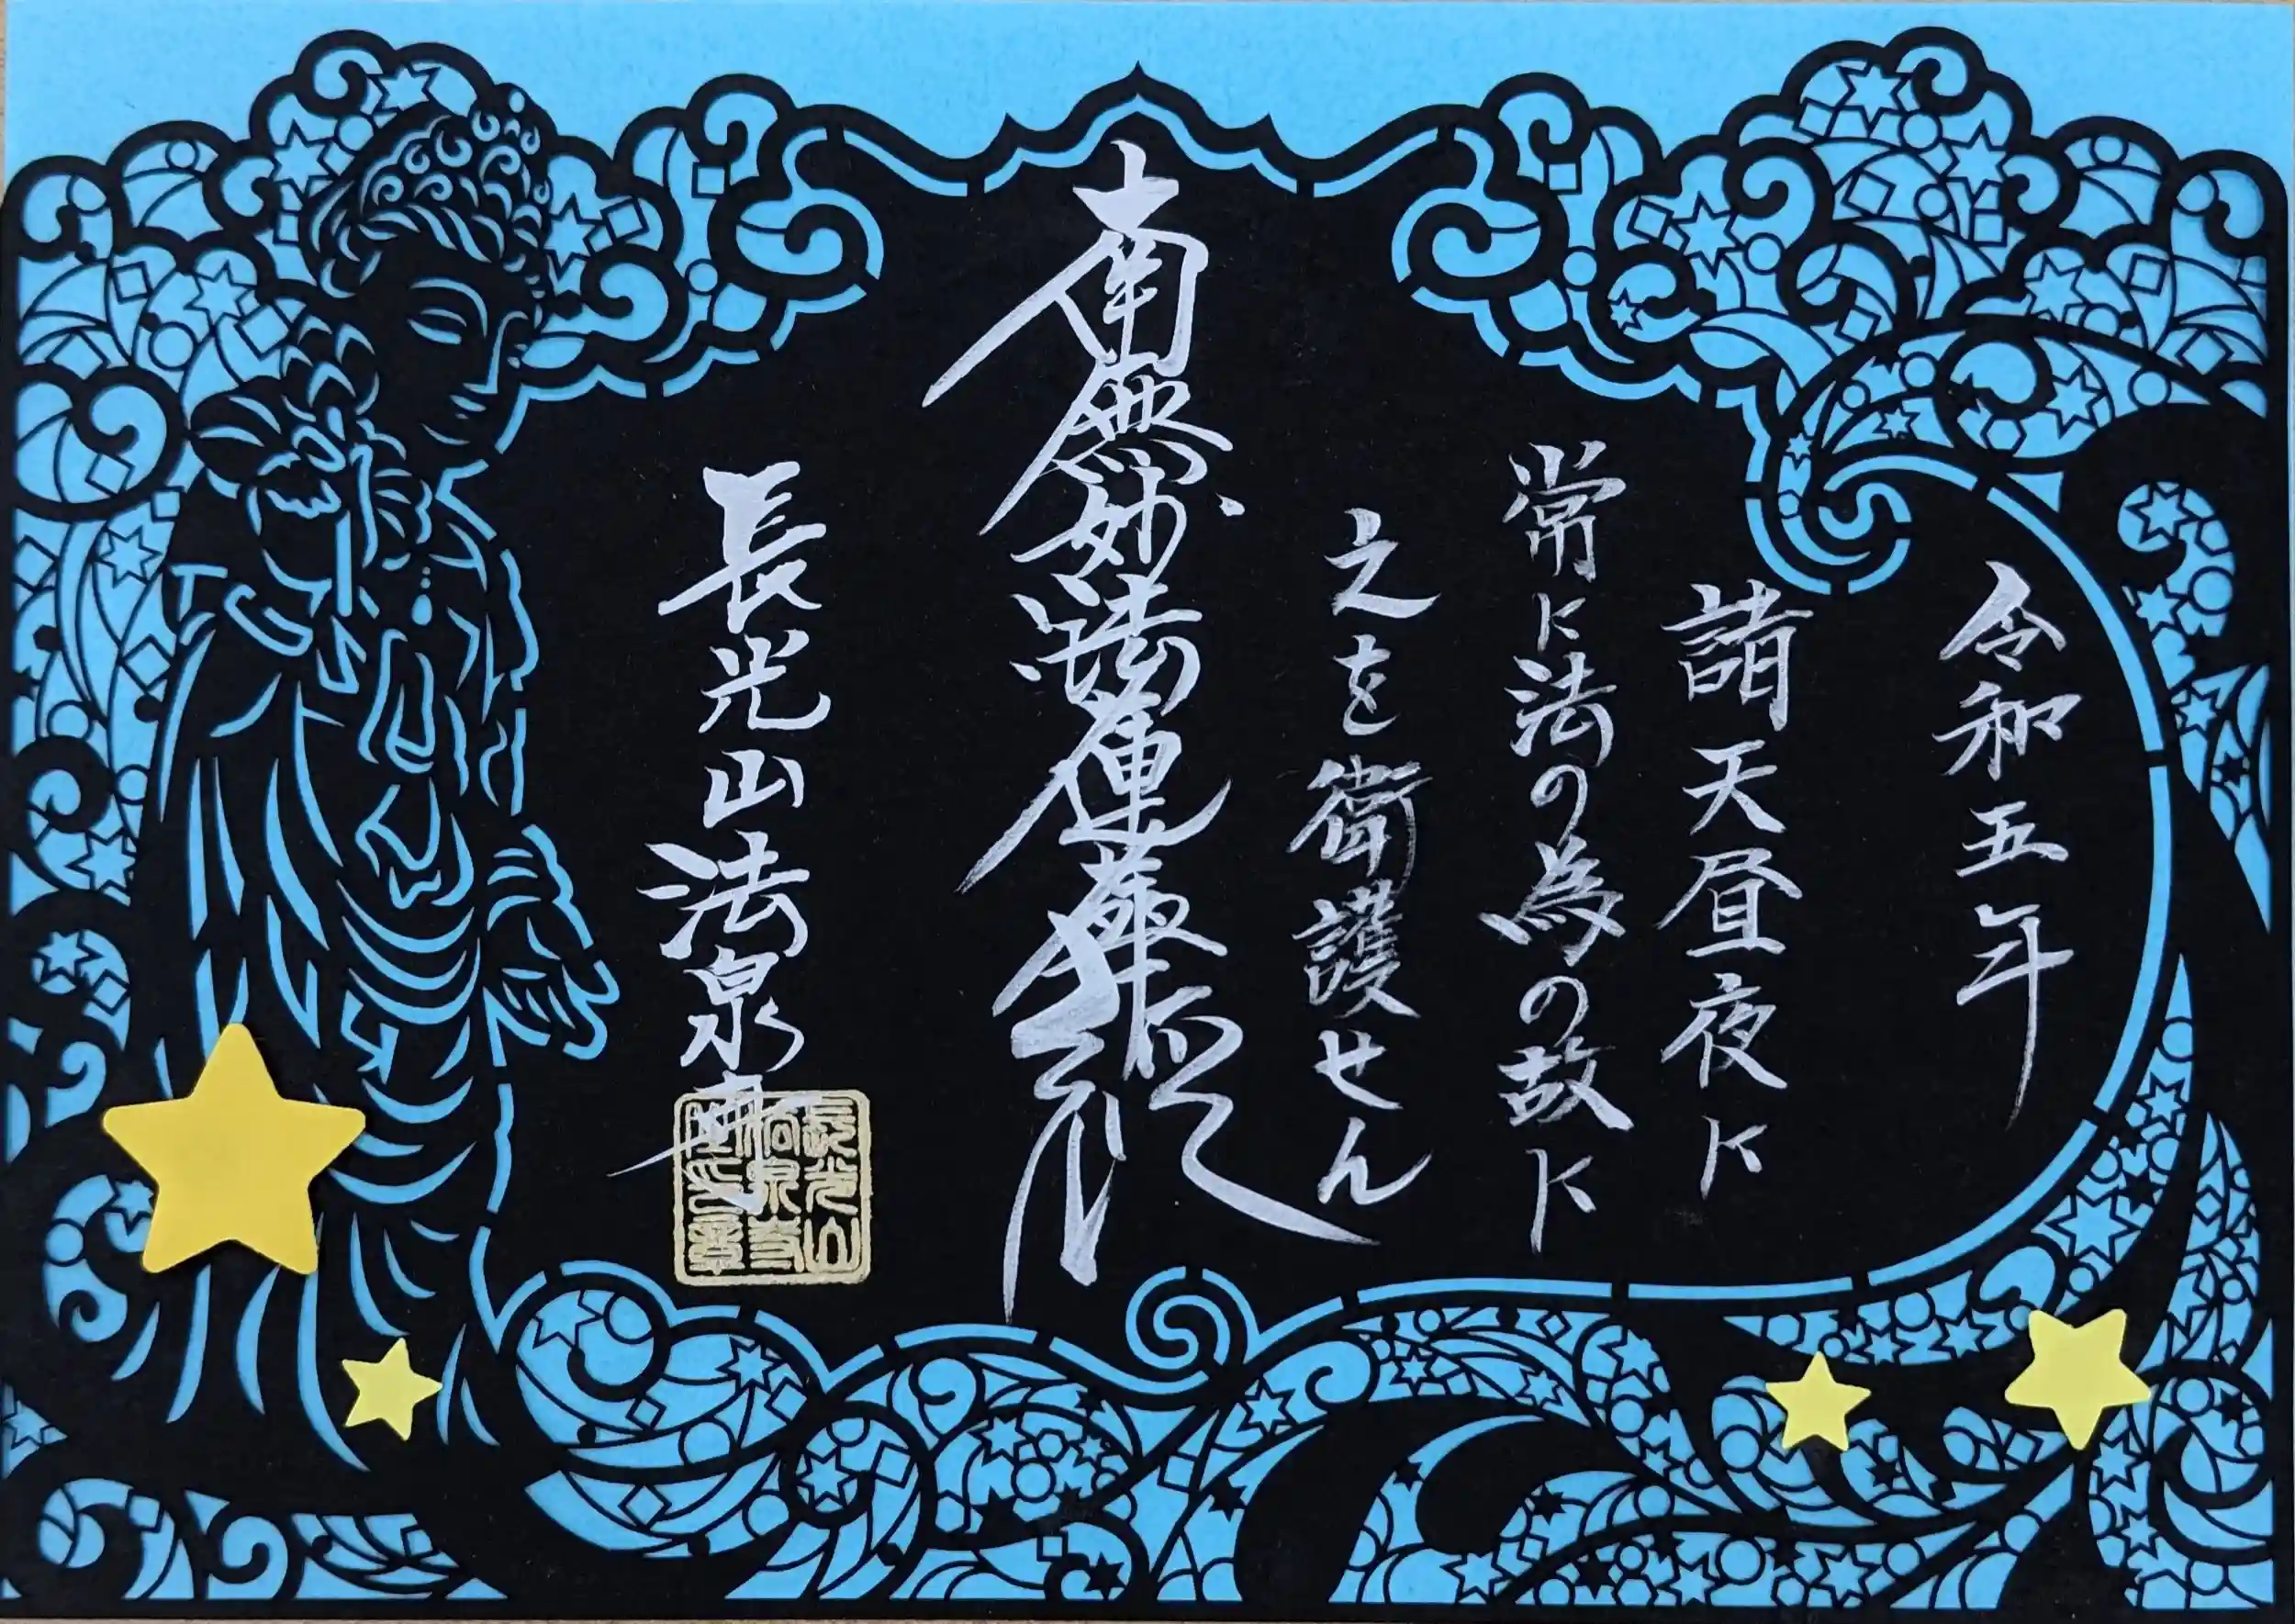 令和五年
諸天昼夜に
常に法の為の故に
之を衛護せん
南無妙法蓮華経
長光山法泉寺
長光山
法泉寺